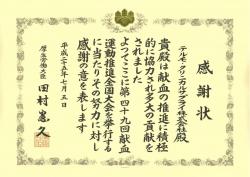 感謝状
テルモ・クリニカルサプライ株式会社殿
貴殿は献血の推進に積極
的に協力され多大の貢献を
されました
よってここに第四十九回献血
運動推進全国大会を挙行する
に当たりその努力に対し
感謝の意を表します
平成二十五年七月五日
厚生労働大臣 田村憲久